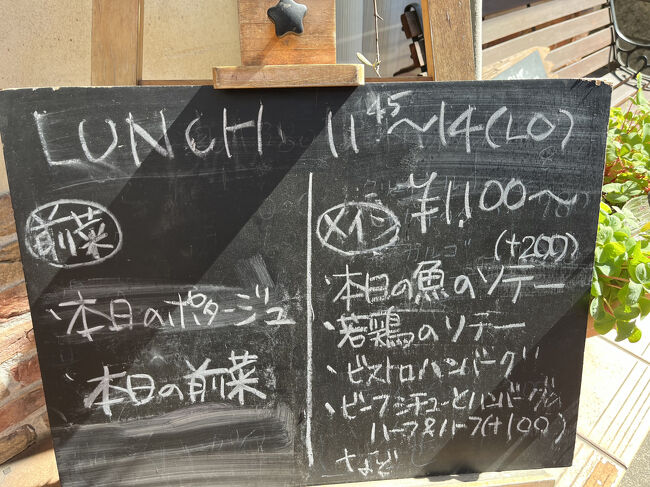 LUNCH 11 45~14(LO)
前菜
・本日のポタージュ
本日の前菜
メイン ¥1,100~
(+200)
・本日の魚のソテー
・若鶏のソテー
・ビストロハンバーグ
・ビーフシチューとハンバーグの
ハーフ&ハーフ(+100)
など